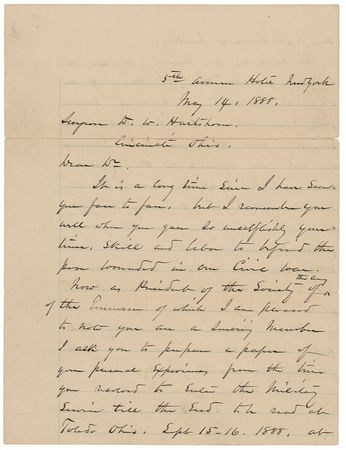 5th Avenue Hotel New York
May 14, 1888.
Surgeon D. W. Hartshorn.
Cincinnati Ohio.
Dear Dr.
It is a long time Since I have Seen
you face to face. but I remember you
well when you gave So unselfishly your
time, Skill and labor to befriend the
poor wounded in our Civil War.
Now as President of the Society of the Army
of the Tennessee of which I am pleased
to note you are a Surviving Member
I ask you to prepare a paper of
your personal Experiences from the time
you resolved to Enter the Military
Service till the End. to be read at
Toledo Ohio. Sept 15-16. 1888, at